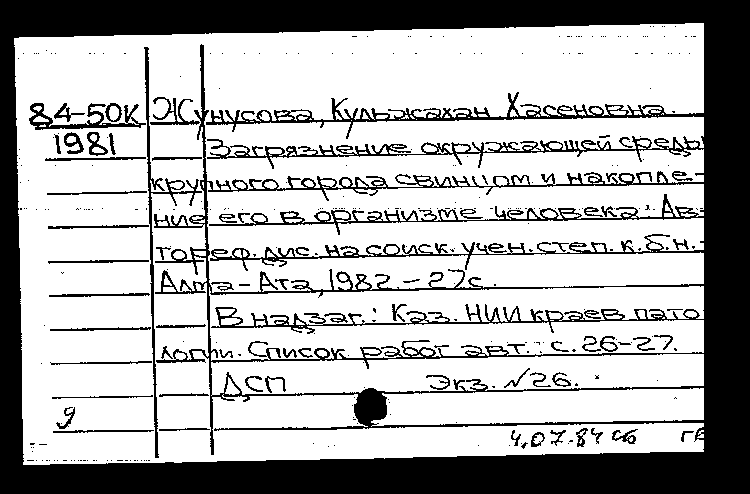 84-50К Жунусова, Кульжахан Хасеновна.
1981 Загрязнение окружающей среды
крупного города свинцом и накопле-
ние его в организме человека: Ав-
тореф. дис. на соиск. учен. степ. к.б.н. -
Алма-Ата, 1982 - 27с.
В надзаг.: Каз. НИИ краев пато
логии. Список работ авт.: с. 26-27.
ДСП Экз. №26.
9
4.07.84 сб ГБ